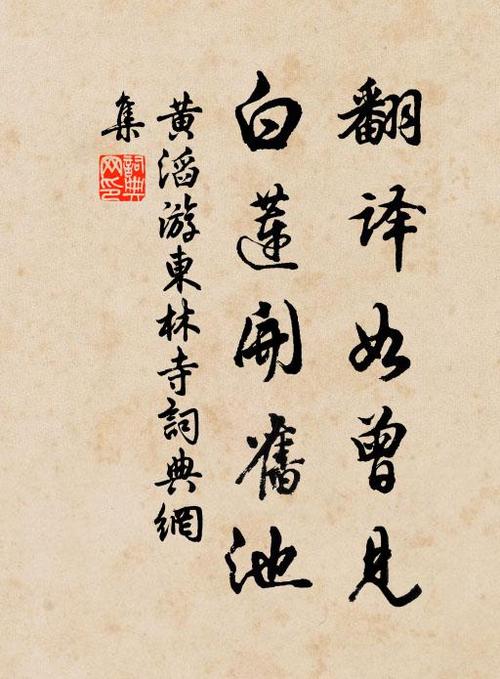 翻译如曾见
白蓮開舊池
黄滔游東林寺詞典網
集
詞典网印